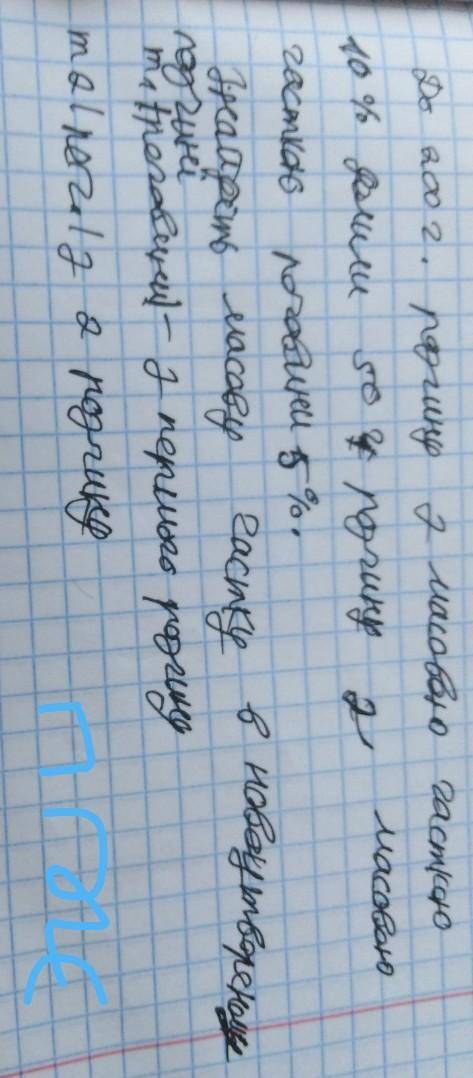 До 200 г. розчину з масовою часткою
10% долили 50 г розчину з масовою
часткою речовини 5%.
Знайдіть масову частку в новоутвореному
розчині
m1 (речовини) - з першого розчину
m2 (реч.) з 2 розчину
ПЖ